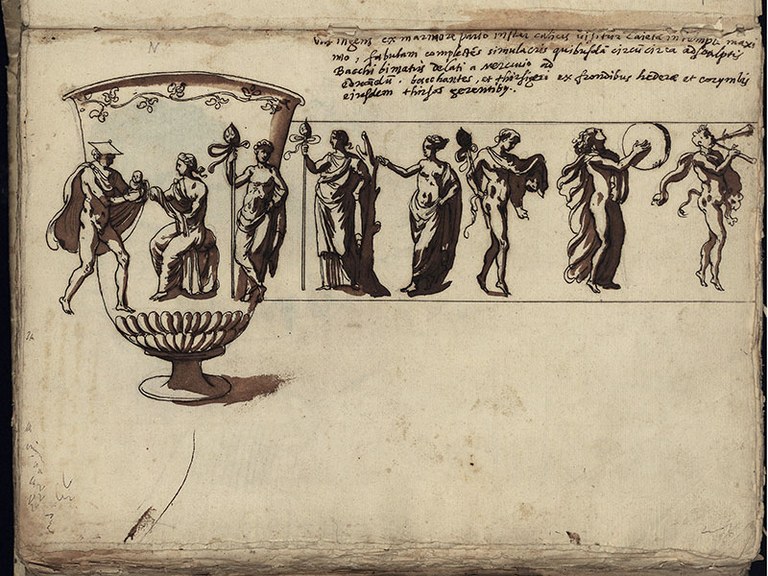 Vas ingens ex marmore pario instar calicis visitur Caietæ in templo maxi
mo, fabulam complectēs simulacris quibusdā circū circa adsculptis
Bacchi bimatris delati a Mercurio ad
. bacchantes, et thirsigeri ex frondibus hederæ et corymbis
eiusdem thirsos gerentibȝ.
N